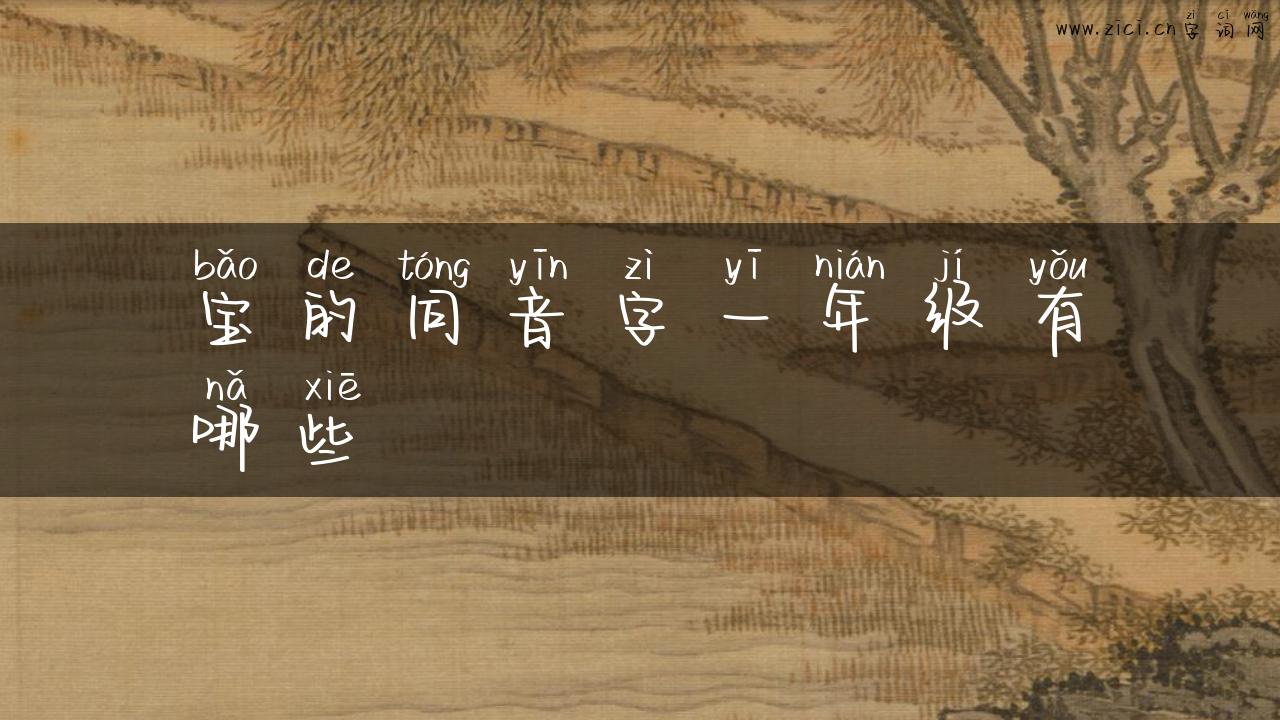 zì cí wǎng
www.zici.cn字词网
bǎo de tóng yīn zì yī nián jí yǒu
宝的同音字一年级有
nǎ xiē
哪些